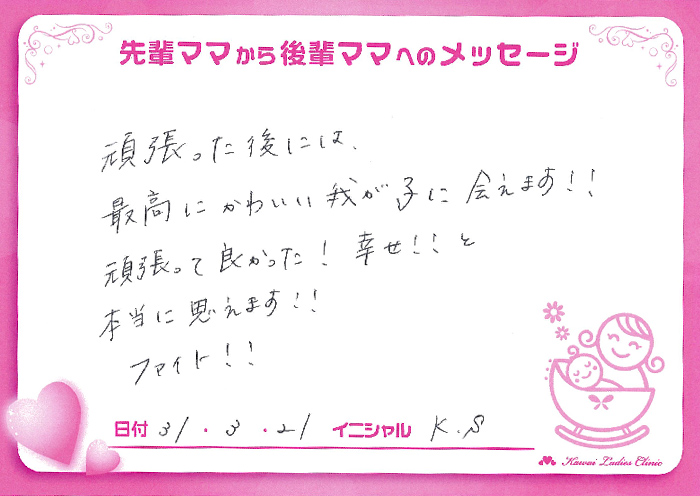 先輩ママから後輩ママへのメッセージ
頑張った後には、
最高にかわいい我が子に会えます!!
頑張って良かった!幸せ!!と
本当に思えます!!
ファイト!!
日付 31・3・21 イニシャル K.S
Kawai Ladies Clinic